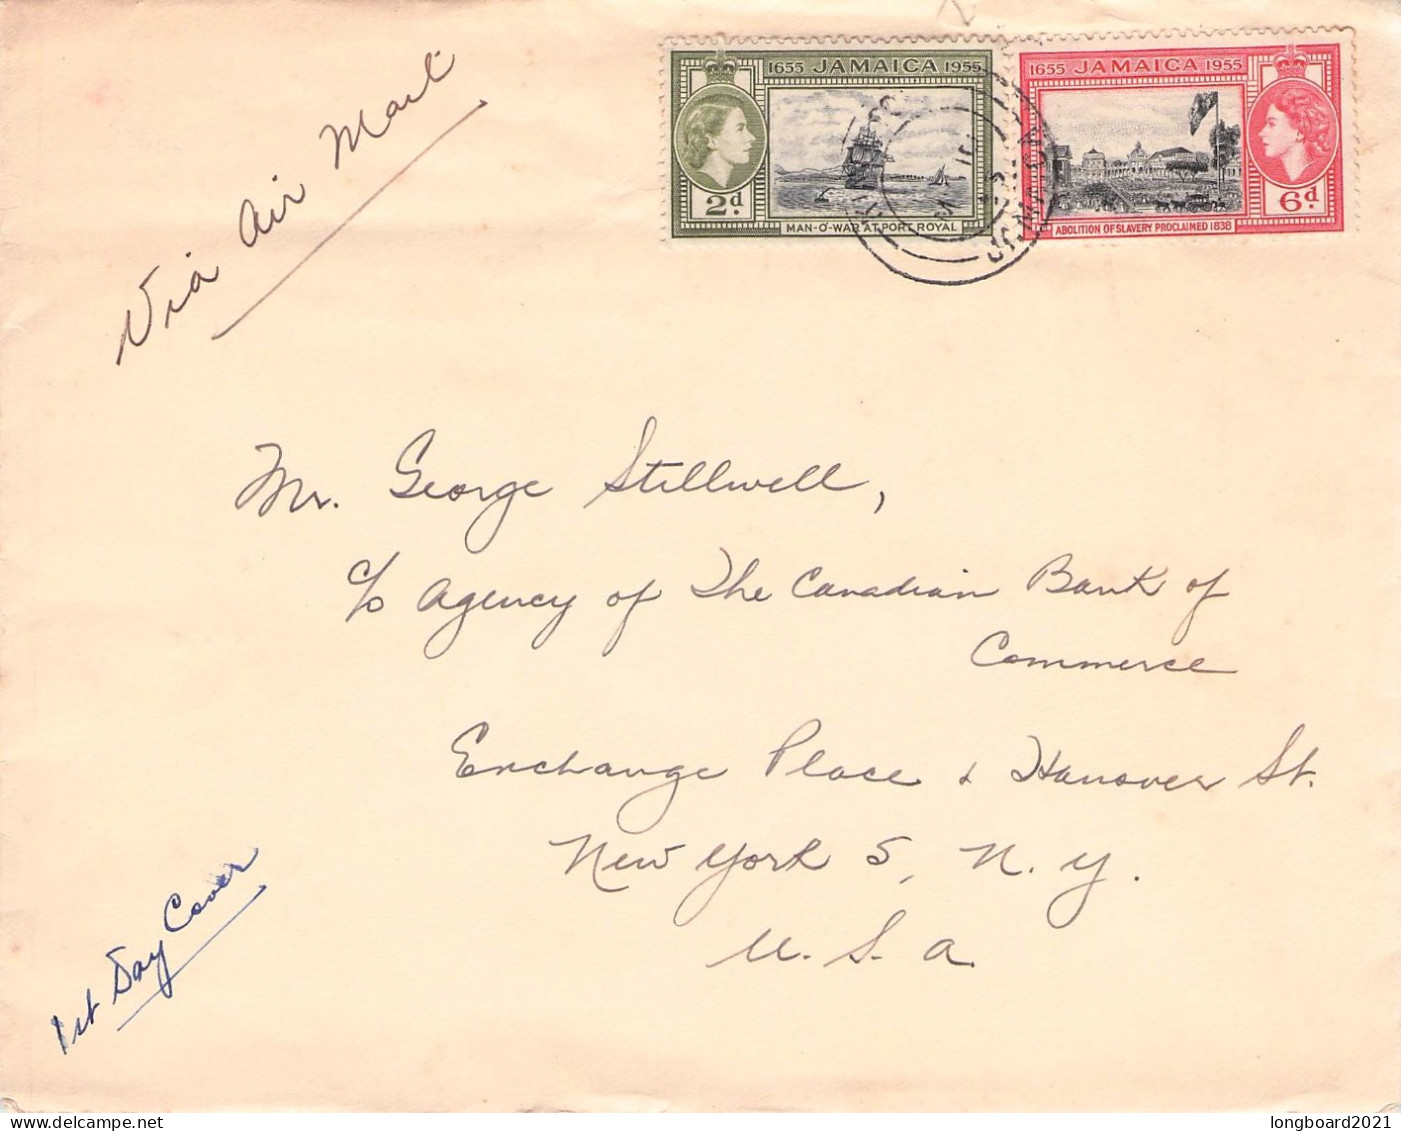 Via Air Mail
1655 JAMAICA 1955
2d.
MAN-O'-WAR AT PORT ROYAL
1655 JAMAICA 1955
6d.
ABOLITION OF SLAVERY PROCLAIMED 1838
JAMAICA
Mr. George Stillwell,
c/o Agency of The Canadian Bank of
Commerce
Exchange Place & Hanover St.
New York 5, N. Y.
U. S. A.
1st Day Cover
longboard2021